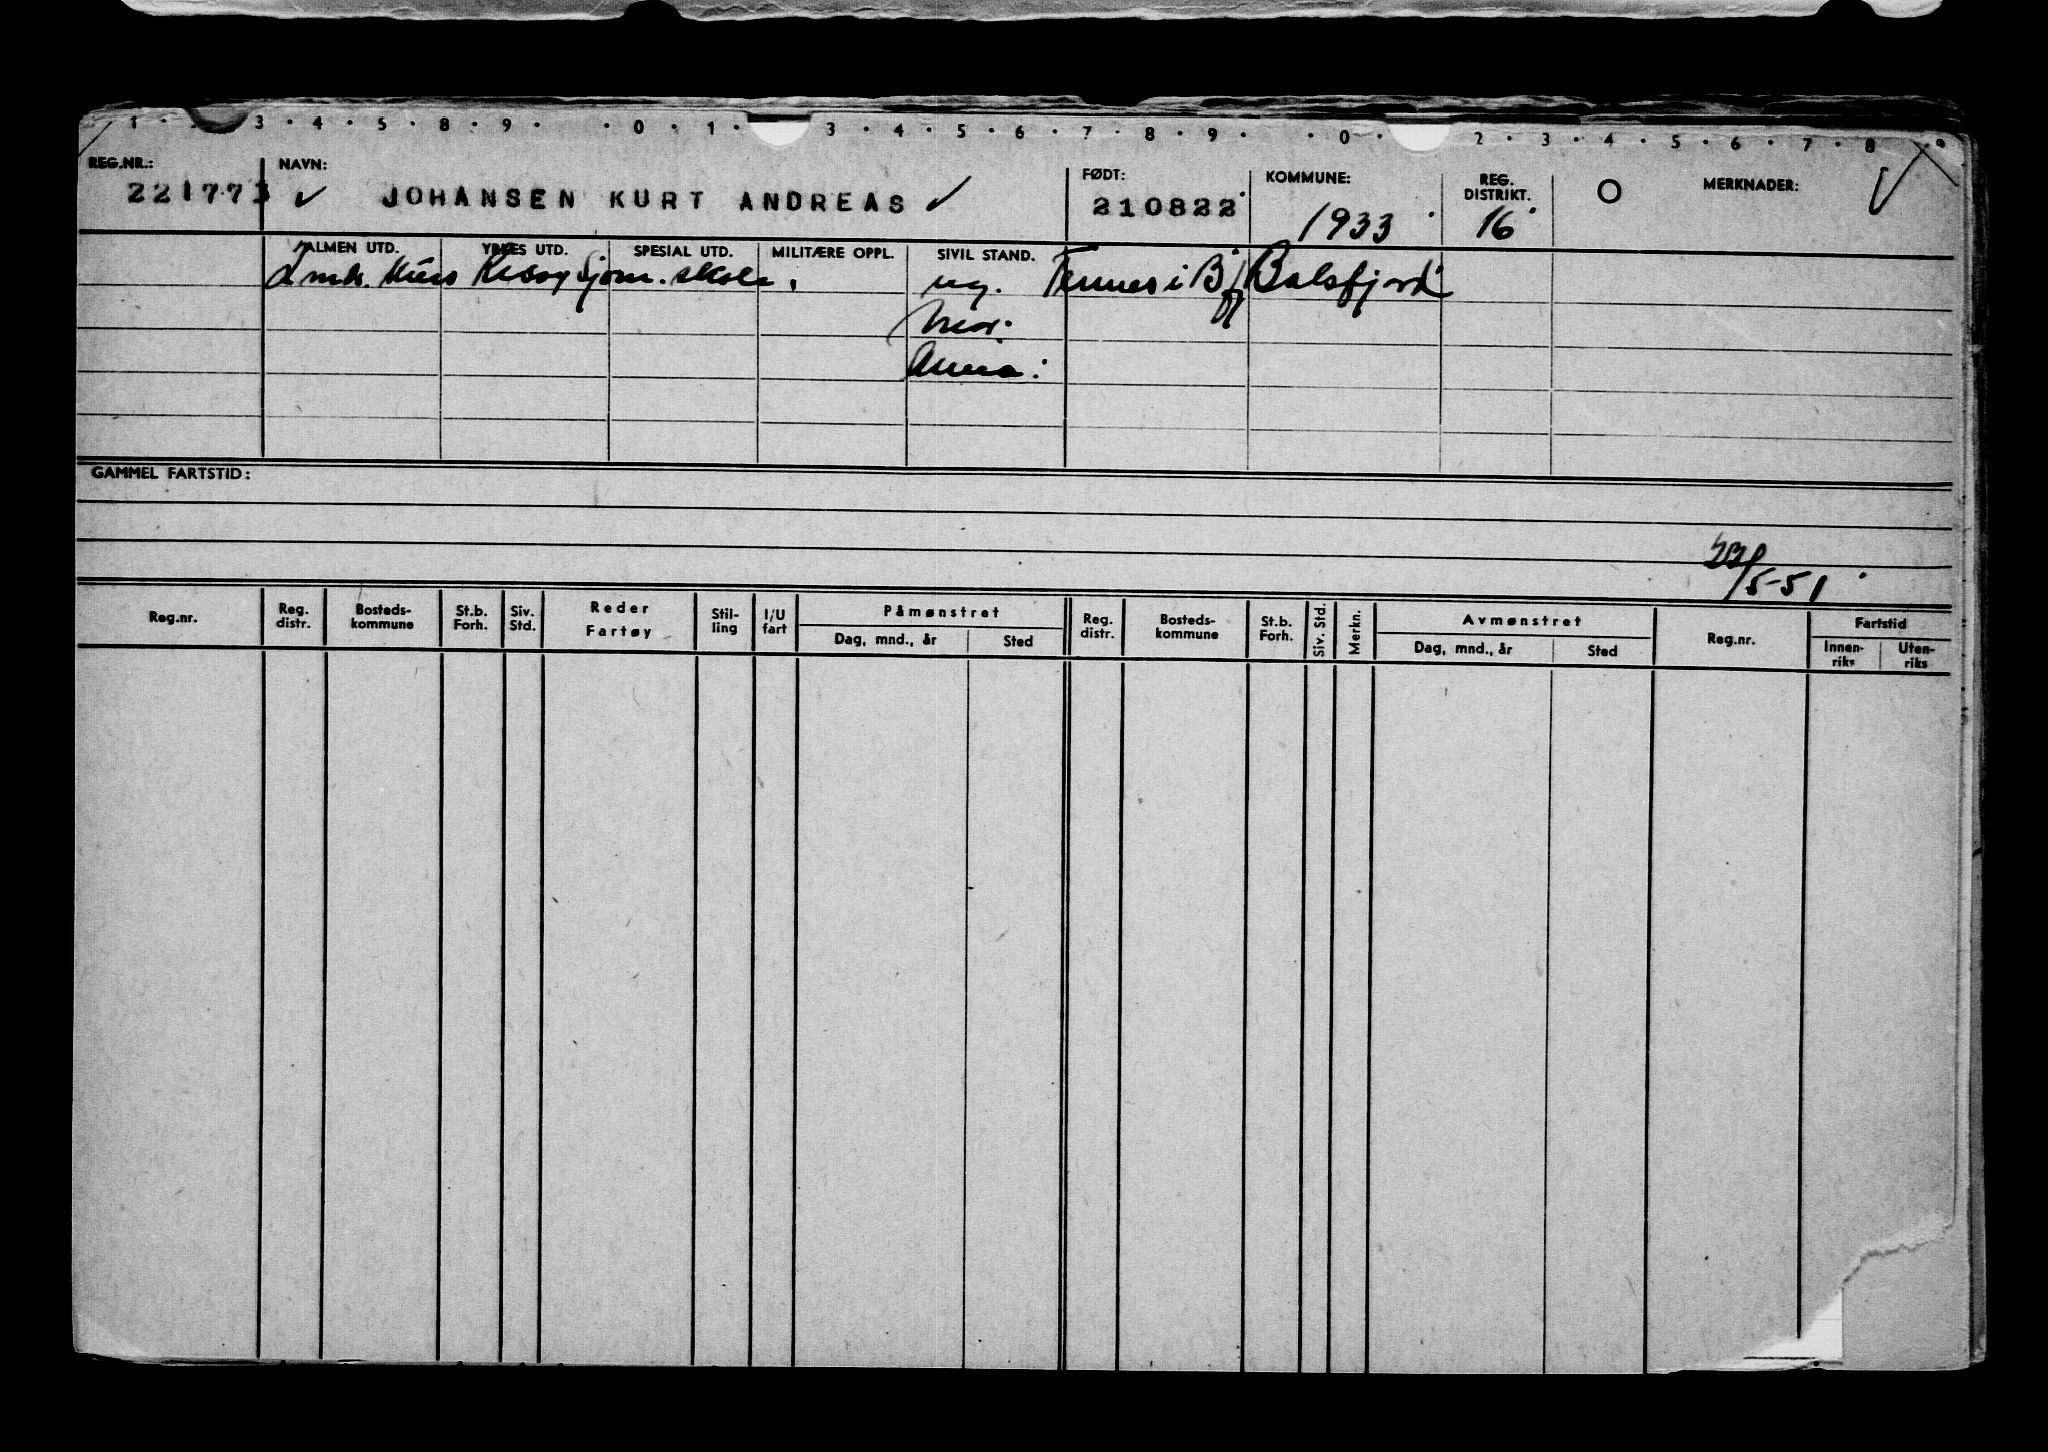 1 . . 3 . 4 . 5 . 8 . 9 . . 0 . 1 . 3 . 4 . 5 . 6 . 7 . 8 . 9 . . 0 . 2 . 3 . 4 . 5 . 6 . 7 . 8 . 9
REG.NR.: NAVN: FØDT: KOMMUNE: REG. DISTRIKT. O MERKNADER:
221773 ✓ JOHANSEN KURT ANDREAS ✓ 210822 1933 16 ✓
ALMEN UTD. YRKES UTD. SPESIAL UTD. MILITÆRE OPPL. SIVIL STAND.
2 mdr. kurs Sjøm. skole. ug. Tennes i B.fj Balsfjord
Mor:
Anna.
GAMMEL FARTSTID:
23/5-51
Reg.nr. Reg. distr. Bosteds-kommune St.b. Forh. Siv. Std. Reder Fartøy Stil-ling I/U fart Påmønstret Reg. distr. Bosteds-kommune St.b. Forh. Siv. Std. Merkn. Avmønstret Reg.nr. Fartstid
Dag, mnd., år Sted Dag, mnd., år Sted Innen-riks Uten-riks